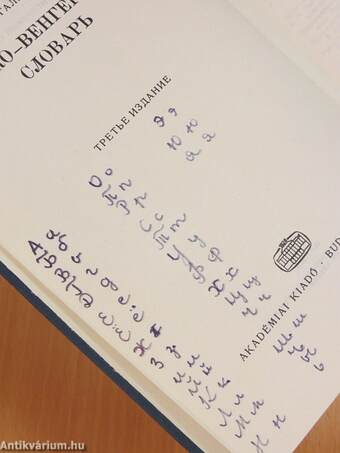 СЛОВАРЬ
ТРЕТЬЕ ИЗДАНИЕ
Э э
Ю ю
Я я
О о
П п
Р р
С с
Т т
У у
Ф ф
Х х
Ц ц
Ч ч
А а
Б б
В в
Г г
Д д
Е е
Ё ё
Ж ж
З з
И и
Й й
К к
Л л
М м
Н н
AKADÉMIAI KIADÓ · BUD
Antikvárium.hu